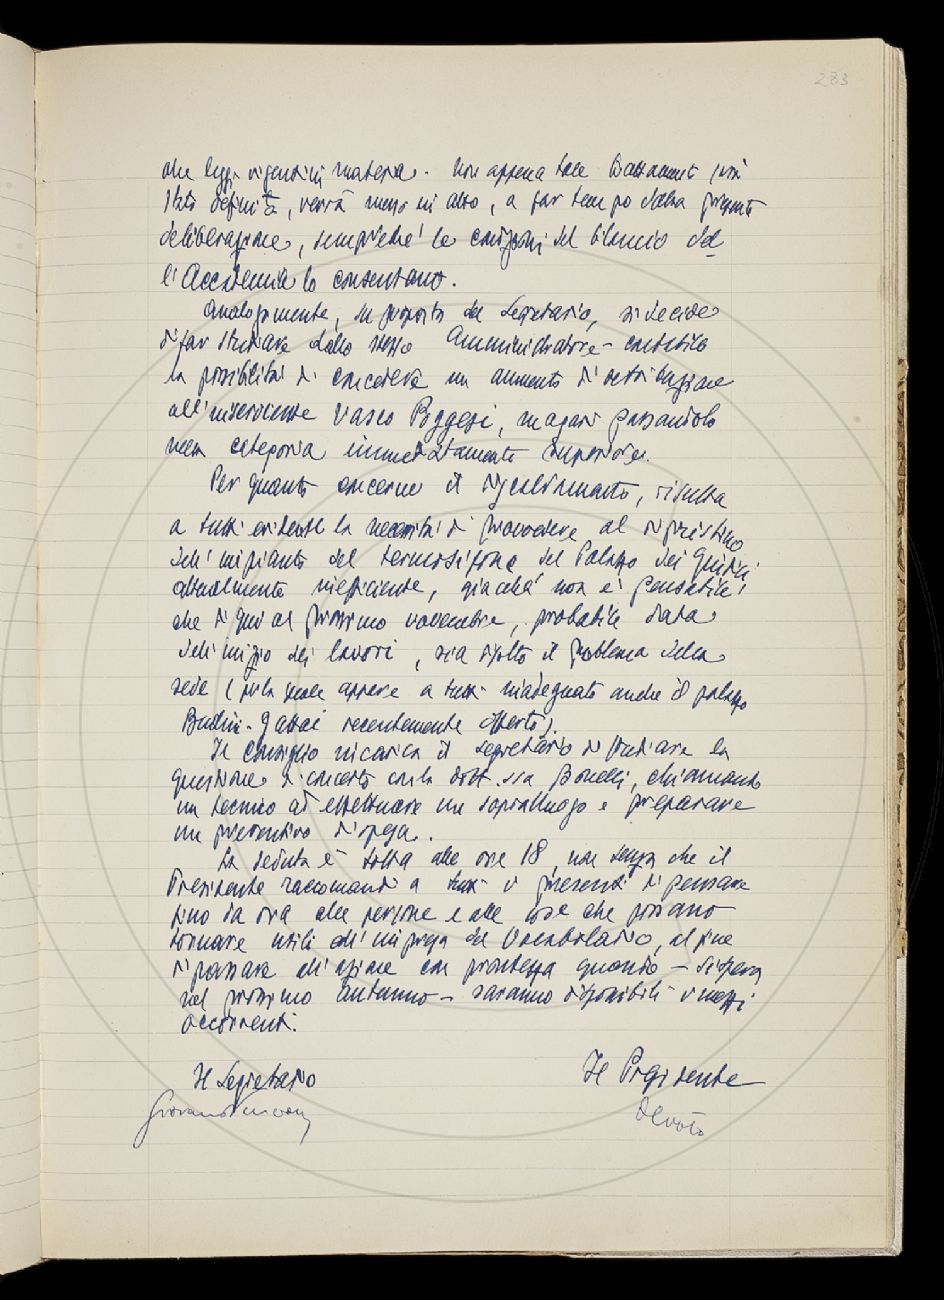 233
alle leggi vigenti in materia. Non appena tale trattamento sarà
stato definito, verrà messo in atto, a far tempo dalla presente
deliberazione, sempreché le condizioni del bilancio del
l'Accademia lo consentano.
Analogamente, su proposta del Segretario, si decide
di far studiare dallo stesso Amministratore-contabile
la possibilità di concedere un aumento di retribuzione
all'inserviente Vasco Poggesi, magari passandolo
nella categoria immediatamente superiore.
Per quanto concerne il riscaldamento, risulta
a tutti evidente la necessità di provvedere al ripristino
dell'impianto del termosifone del Palazzo dei Giudici
attualmente inefficiente, giacché non è pensabile
che di qui al prossimo novembre, probabile data
dell'inizio dei lavori, sia risolto il problema della
sede (per la quale appare a tutti inadeguato anche il palazzo
Budini-Gattai recentemente offerto).
Il Consiglio incarica il Segretario di studiare la
questione di concerto con la dott.ssa Bonelli, chiamando
un tecnico ad effettuare un sopralluogo e preparare
un preventivo di spesa.
La seduta è tolta alle ore 18, non senza che il
Presidente raccomandi a tutti i presenti di pensare
fino da ora alle persone e alle cose che possano
tornare utili all'impresa del Vocabolario, al fine
di passare all'azione con prontezza quando – si spera
nel prossimo autunno – saranno disponibili i mezzi
occorrenti.
Il Segretario
Il Presidente
Giovanni Nencioni
Devoto